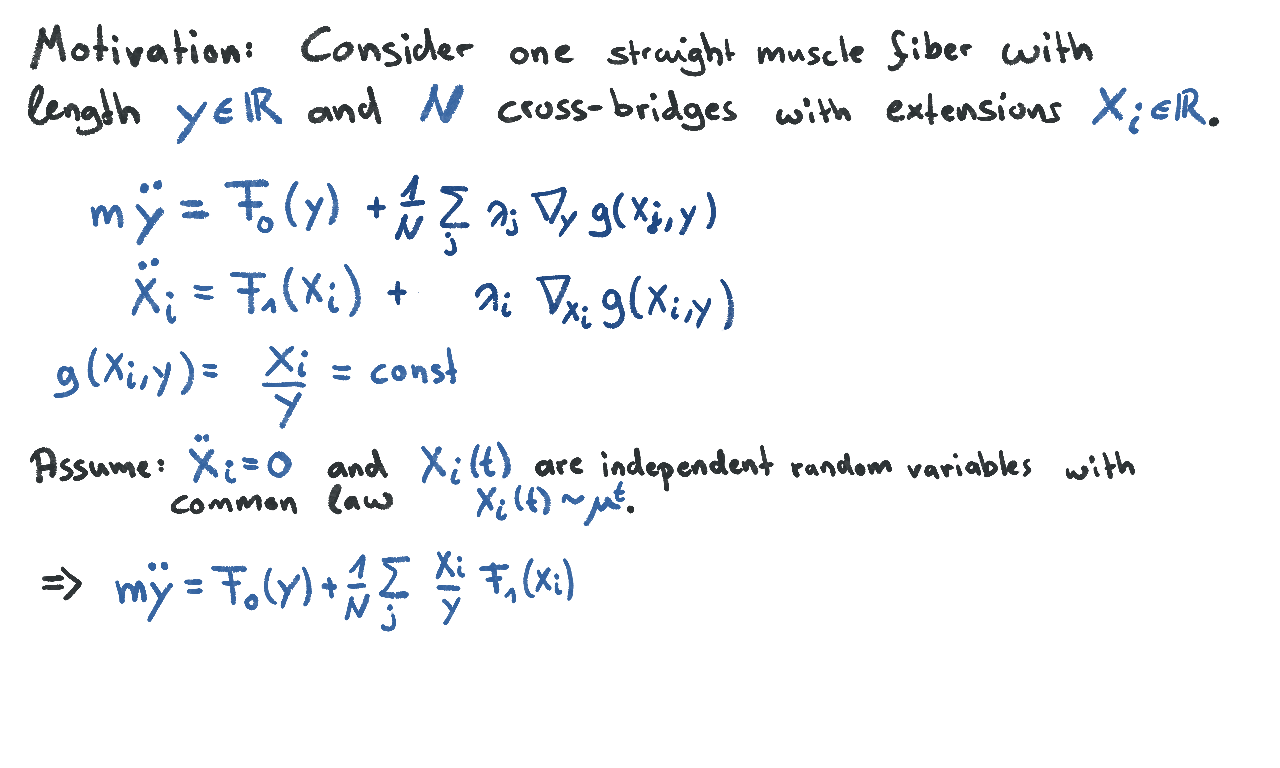 Motivation: Consider one straight muscle fiber with
length y∈ℝ and N cross-bridges with extensions X_i∈ℝ.
m ÿ = F_0(y) + 1/N Σ_j λ_j ∇_y g(X_j, y)
Ẍ_i = F_1(X_i) + λ_i ∇_{X_i} g(X_i, y)
g(X_i, y) = X_i/y = const
Assume: Ẍ_i = 0 and X_i(t) are independent random variables with
common law X_i(t) ~ μ^t.
⇒ m ÿ = F_0(y) + 1/N Σ_j X_i/y F_1(X_i)